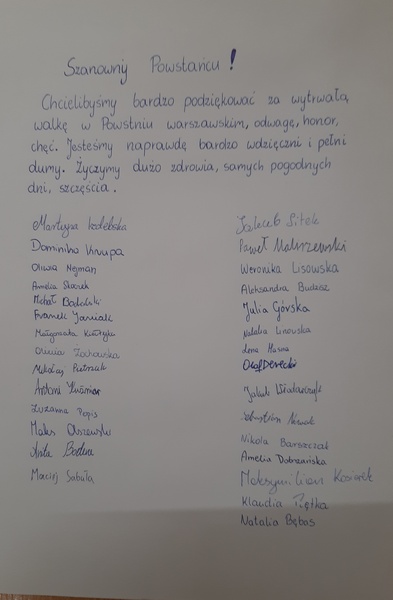 Szanowny Powstańcu!
Chcielibyśmy bardzo podziękować za wytrwałą
walkę w Powstniu warszawskim, odwagę, honor,
chęć. Jesteśmy naprawdę bardzo wdzięczni i pełni
dumy. Życzymy dużo zdrowia, samych pogodnych
dni, szczęścia.
Martyna
Dominika Krupa
Oliwia Nejman
Amelia Skorek
Michał
Franek Janiak
Małgorzata
Oliwia Żochowska
Mikołaj Pietrzak
Antoni
Zuzanna Popis
Maks Olszewski
Anita
Maciej Sobala
Jakub Sitek
Paweł Maluszewski
Weronika Lisowska
Aleksandra Budasz
Julia Górska
Natalia Linowska
Lena
Olaf Derecki
Jakub Włodarczyk
Sebastian Nowak
Nikola Barszczak
Amelia Dobrzańska
Maksymilian Kosiorek
Klaudia Piętka
Natalia Bębas